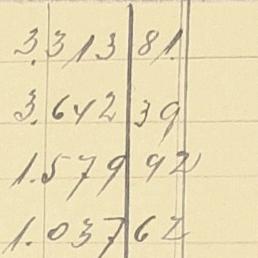 3.313 81.
3.642 39
1.579 92
1.037 62